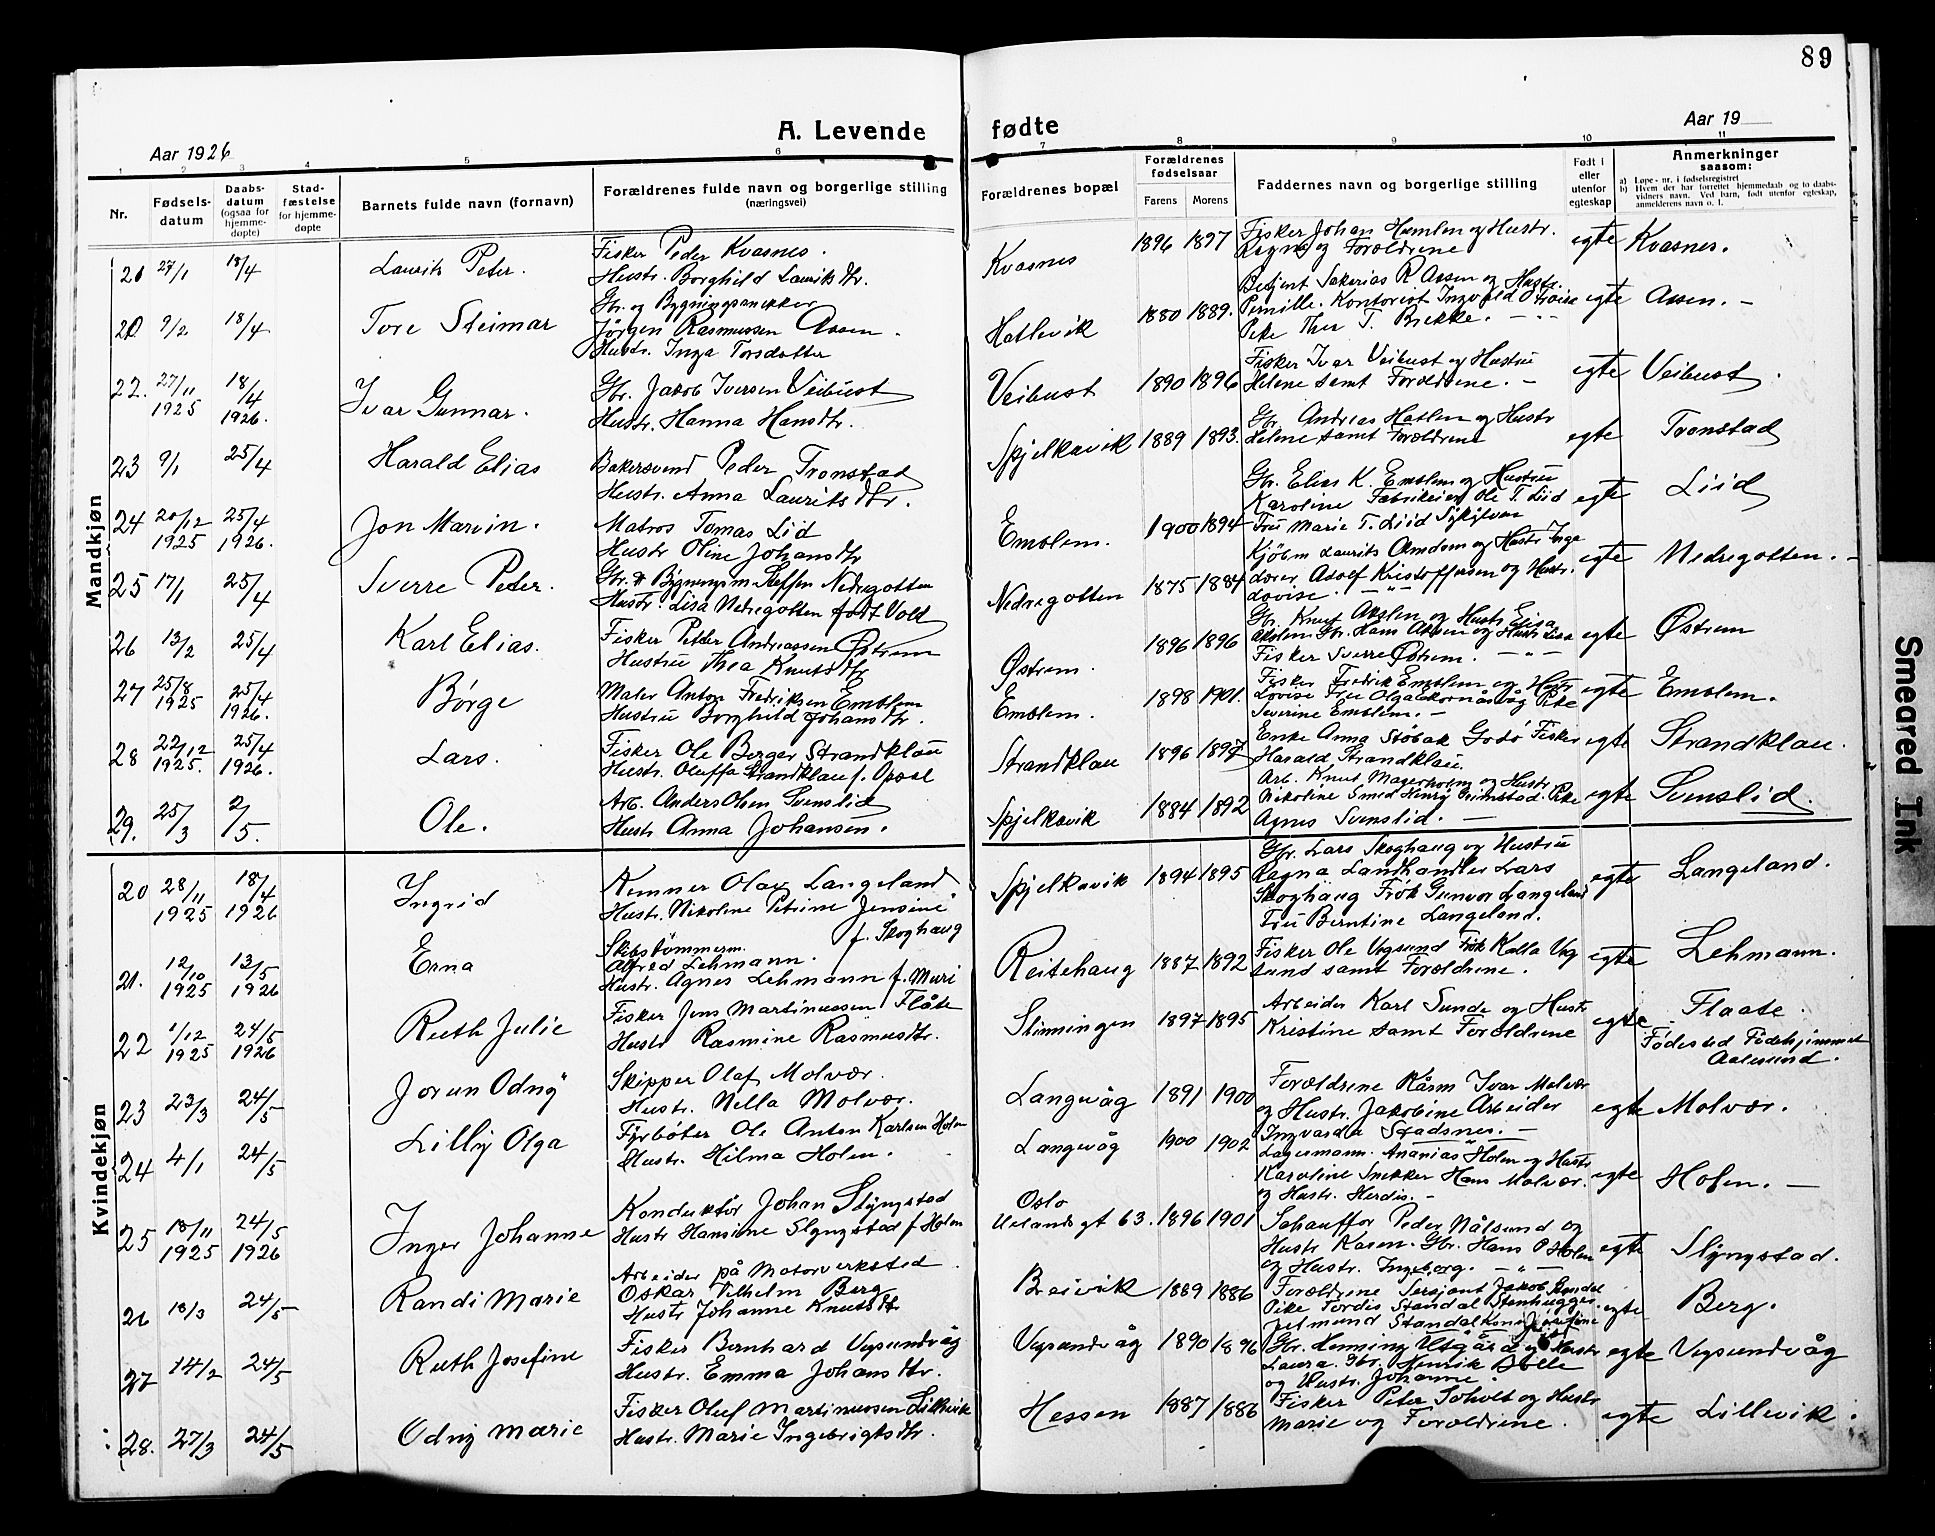 89
A. Levende fødte
Aar 1926
Aar 19
1 2 3 4 5 6 7 8 9 10 11
Nr.
Fødsels-
datum
Daabs-
datum
(ogsaa for
hjemme-
døpte)
Stad-
fæstelse
for hjemme-
døpte
Barnets fulde navn (fornavn)
Forældrenes fulde navn og borgerlige stilling
(næringsvei)
Forældrenes bopæl
Forældrenes
fødselsaar
Farens Morens
Faddernes navn og borgerlige stilling
Født i
eller
utenfor
egteskap
Anmerkninger
saasom:
a) Løpe-nr. i fødselsregistret
b) Hvem der har forrettet hjemmedaab og to daabs-
vidners navn. Ved barn, født utenfor egteskap,
anmelderens navn o. l.
Mandkjøn
27/1 18/4 Laurits Peter.
Fisker Peder Kvasnes.
Hustr. Borghild Lauriksdtr.
Kvasnes 1896 1897
Fisker Johan Humlen og Hustr.
Ragna og Forældrene
egte Kvasnes.
20 9/2 18/4 Tore Steimar
Gbr. og Bygningssnekker
Jørgen Rasmussen Aasen.
Hustr. Inga Torsdatter
Hatlevik 1880 1889.
Betjent Sakarias R Aasen og Hustr.
Pernille. Kontorist Ingvald
Pike Thea T. Brekke.
egte Aasen.
22. 27/11 1925 18/4 1926. Ivar Gunnar.
Gbr. Jakob Iversen Veibust
Hustr. Hanna Hansdtr.
Veibust 1890 1896
Fisker Ivar Veibust og Hustru
Helene samt Forældrene.
egte Veibust.
23 9/1 25/4 Harald Elias
Bakersvend Peder Tronstad
Hustr. Anna Lauritsdtr.
Spjelkavik 1889 1893.
Gbr. Andreas Hatlen og Hustr
Helene samt Forældrene
egte Tronstad
24 20/12 1925 25/4 1926. Jon Marvin.
Matros Tomas Lid
Hustr Oline Johansdtr
Emblem. 1900 1894
Gbr. Elias K. Emblem og Hustru
Karoline Fabrikeier Ole T. Liid
Fru Marie T. Liid Sykkylven
egte Liid
25 17/1 25/4 Sverre Peder.
Gbr. & Bygningsm. Steffen Nedregotten
Hustr. Lisa Nedregotten født Vold
Nedregotten 1875 1884
Kjøbm Laurits Amdam og Hustr Inge
Adolf Kristoffersen og Hustr.
Lovise.
egte Nedregotten.
26 13/2 25/4 Karl Elias.
Fisker Peder Andreassen Østrem
Hustru Thea Knutsdtr
Østrem. 1896 1896
Gbr. Knut Akslen og Hustr Elisa
Akslen Gbr. Hans Aksen og Hustr Lisa
Fisker Sverre Østrem.
egte Østrem
27 25/8 1925 25/4 1926. Børge
Maler Anton Fredriksen Emblem
Hustru Borghild Johansdtr.
Emblem. 1898 1901.
Fisker Fredrik Emblem og Hustr
Lovise Fru Olga og Pike
Severine Emblem.
egte Emblem.
28 22/12 1925. 25/4 1926. Lars.
Fisker Ole Berger Strandklau
Hustr. Oluffa Strandklau f. Opsal
Strandklau 1896 1897
Enke Anna Støbak Godø Fisker
Harald Strandklau.
egte Strandklau.
29. 25/3 2/5. Ole.
Arb. Anders Olsen Svenslid
Hustr Anna Johansen.
Spjelkavik 1884 1892
Arb. Knut Magerholm og Hustr
Nikoline Smed Henry Grimstad. Pike
Agnes Svenslid.
egte Svenslid.
Kvindekjøn
20 28/11 1925 18/4 1926 Ingrid
Kemner Olav Langeland
Hustr. Nikoline Petrine Jensine
f. Skoghaug
Spjelkavik 1894 1895
Gbr. Lars Skoghaug og Hustru
Ragna Landhandler Lars
Skoghaug Frøk Gunvor Langeland
Fru Berntine Langeland.
egte Langeland.
21. 12/10 1925 13/5 1926 Erna
Skibstømmerm.
Alfred Lehmann.
Hustr. Agnes Lehmann f. Muri
Reitehaug 1887 1892
Fisker Ole Vegsund Frøk Kalla Veg
sund samt Forældrene.
egte Lehmann.
22 1/12 1925 24/5 1926 Ruth Julie
Fisker Jens Martinussen Flåte
Hustr Rasmine Rasmusdtr.
Slinningen 1897 1895
Arbeider Karl Sunde og Hustr
Kristine samt Forældrene
egte Flaate.
Fødested Fødehjemmet
Aalesund.
23 23/3 24/5 Jorun Odny
Skipper Olaf Molvær.
Hustr. Nella Molvær.
Langevåg 1891 1900
Forældrene Kåsm Ivar Molvær
og Hustr. Jakobine Arbeider
Ingvarda Stadsnes.
egte Molvær.
24 4/1 24/5 Lilly Olga
Fyrbøter Ole Anton Karlsen Holm
Hustr. Hilma Holen.
Langevåg 1900 1902
Lagermann. Ananias Holen og Hustr
Karoline Snekker Hans Molvær.
og Hustr. Herdis.
egte Holen.
25 18/11 1925 24/5 1926 Inger Johanne
Konduktør Johan Slyngstad
Hustr Hansine Slyngstad f. Holen
Oslo
Uelandsgt 63. 1896 1901
Schauffør Peder Målsund og
Hustr Kasen. Gbr. Hans P Holen
og Hustr. Ingeborg.
egte Slyngstad.
26 18/3 24/5 Randi Marie
Arbeider på Motorverksted
Oskar Vilhelm Berg
Hustr Johanne Knutsdtr
Breivik 1889 1886
Forældrene Sersjant Jakob
Pike Tordis Standal Stenhugger
Jetmund Standal
egte Berg.
27 14/2 24/5 Ruth Josefine
Fisker Bernhard Vegsundvåg
Hustr. Emma Johansdtr.
Vegsundvåg 1890 1896
Gbr. Henning Utgård og Hustr
Laura. Gbr. Henrik Bølle
og Hustr. Johanne.
egte Vegsundvåg
28. 27/3 24/5 Odny Marie
Fisker Oluf Martinussen Lillevik
Hustr. Marie Ingebrigtsdtr.
Hessen 1887 1886
Fisker Peter Soholt og Hustr
Marie og Forældrene.
egte Lillevik.
Smeared Ink